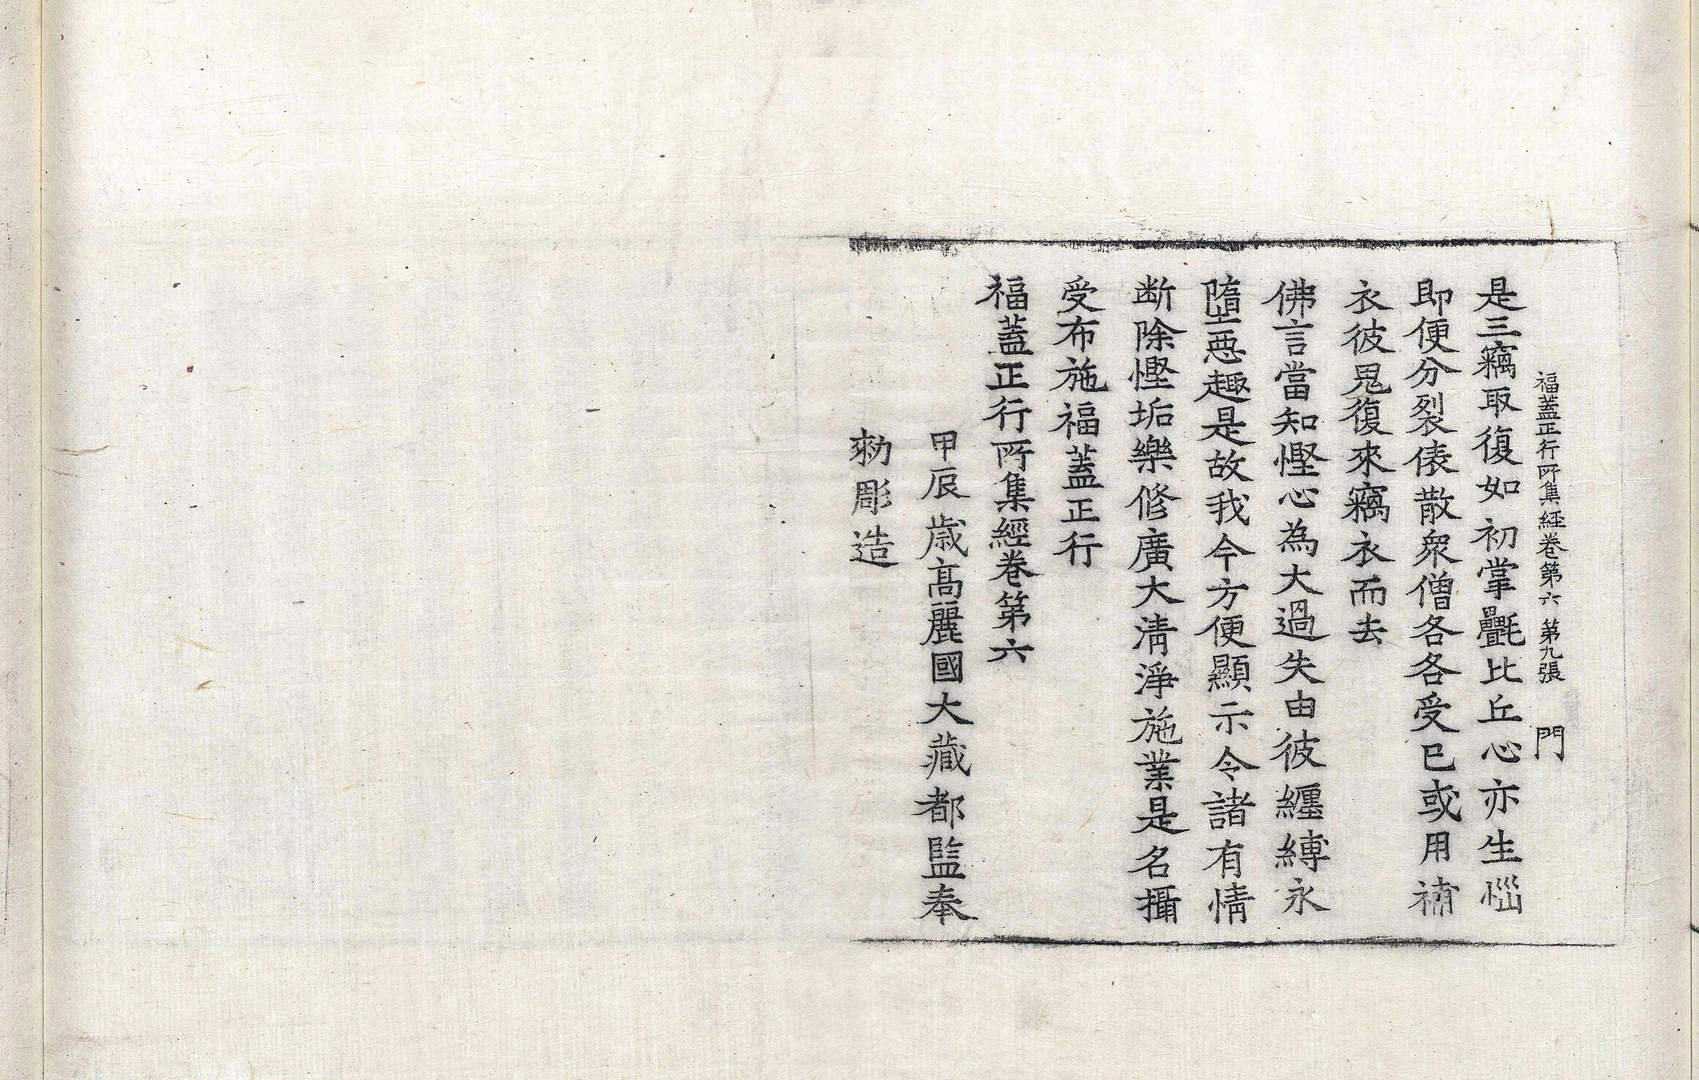 福蓋正行所集經卷第六 第九張 門
是三竊取復如初掌氎比丘心亦生惱
即便分裂俵散衆僧各各受已或用補
衣彼鬼復來竊衣而去
佛言當知慳心為大過失由彼纏縛永
墮惡趣是故我今方便顯示令諸有情
断除慳垢樂修廣大清淨施業是名攝
受布施福蓋正行
福蓋正行所集經卷第六
甲辰歳高麗國大藏都監奉
勑彫造